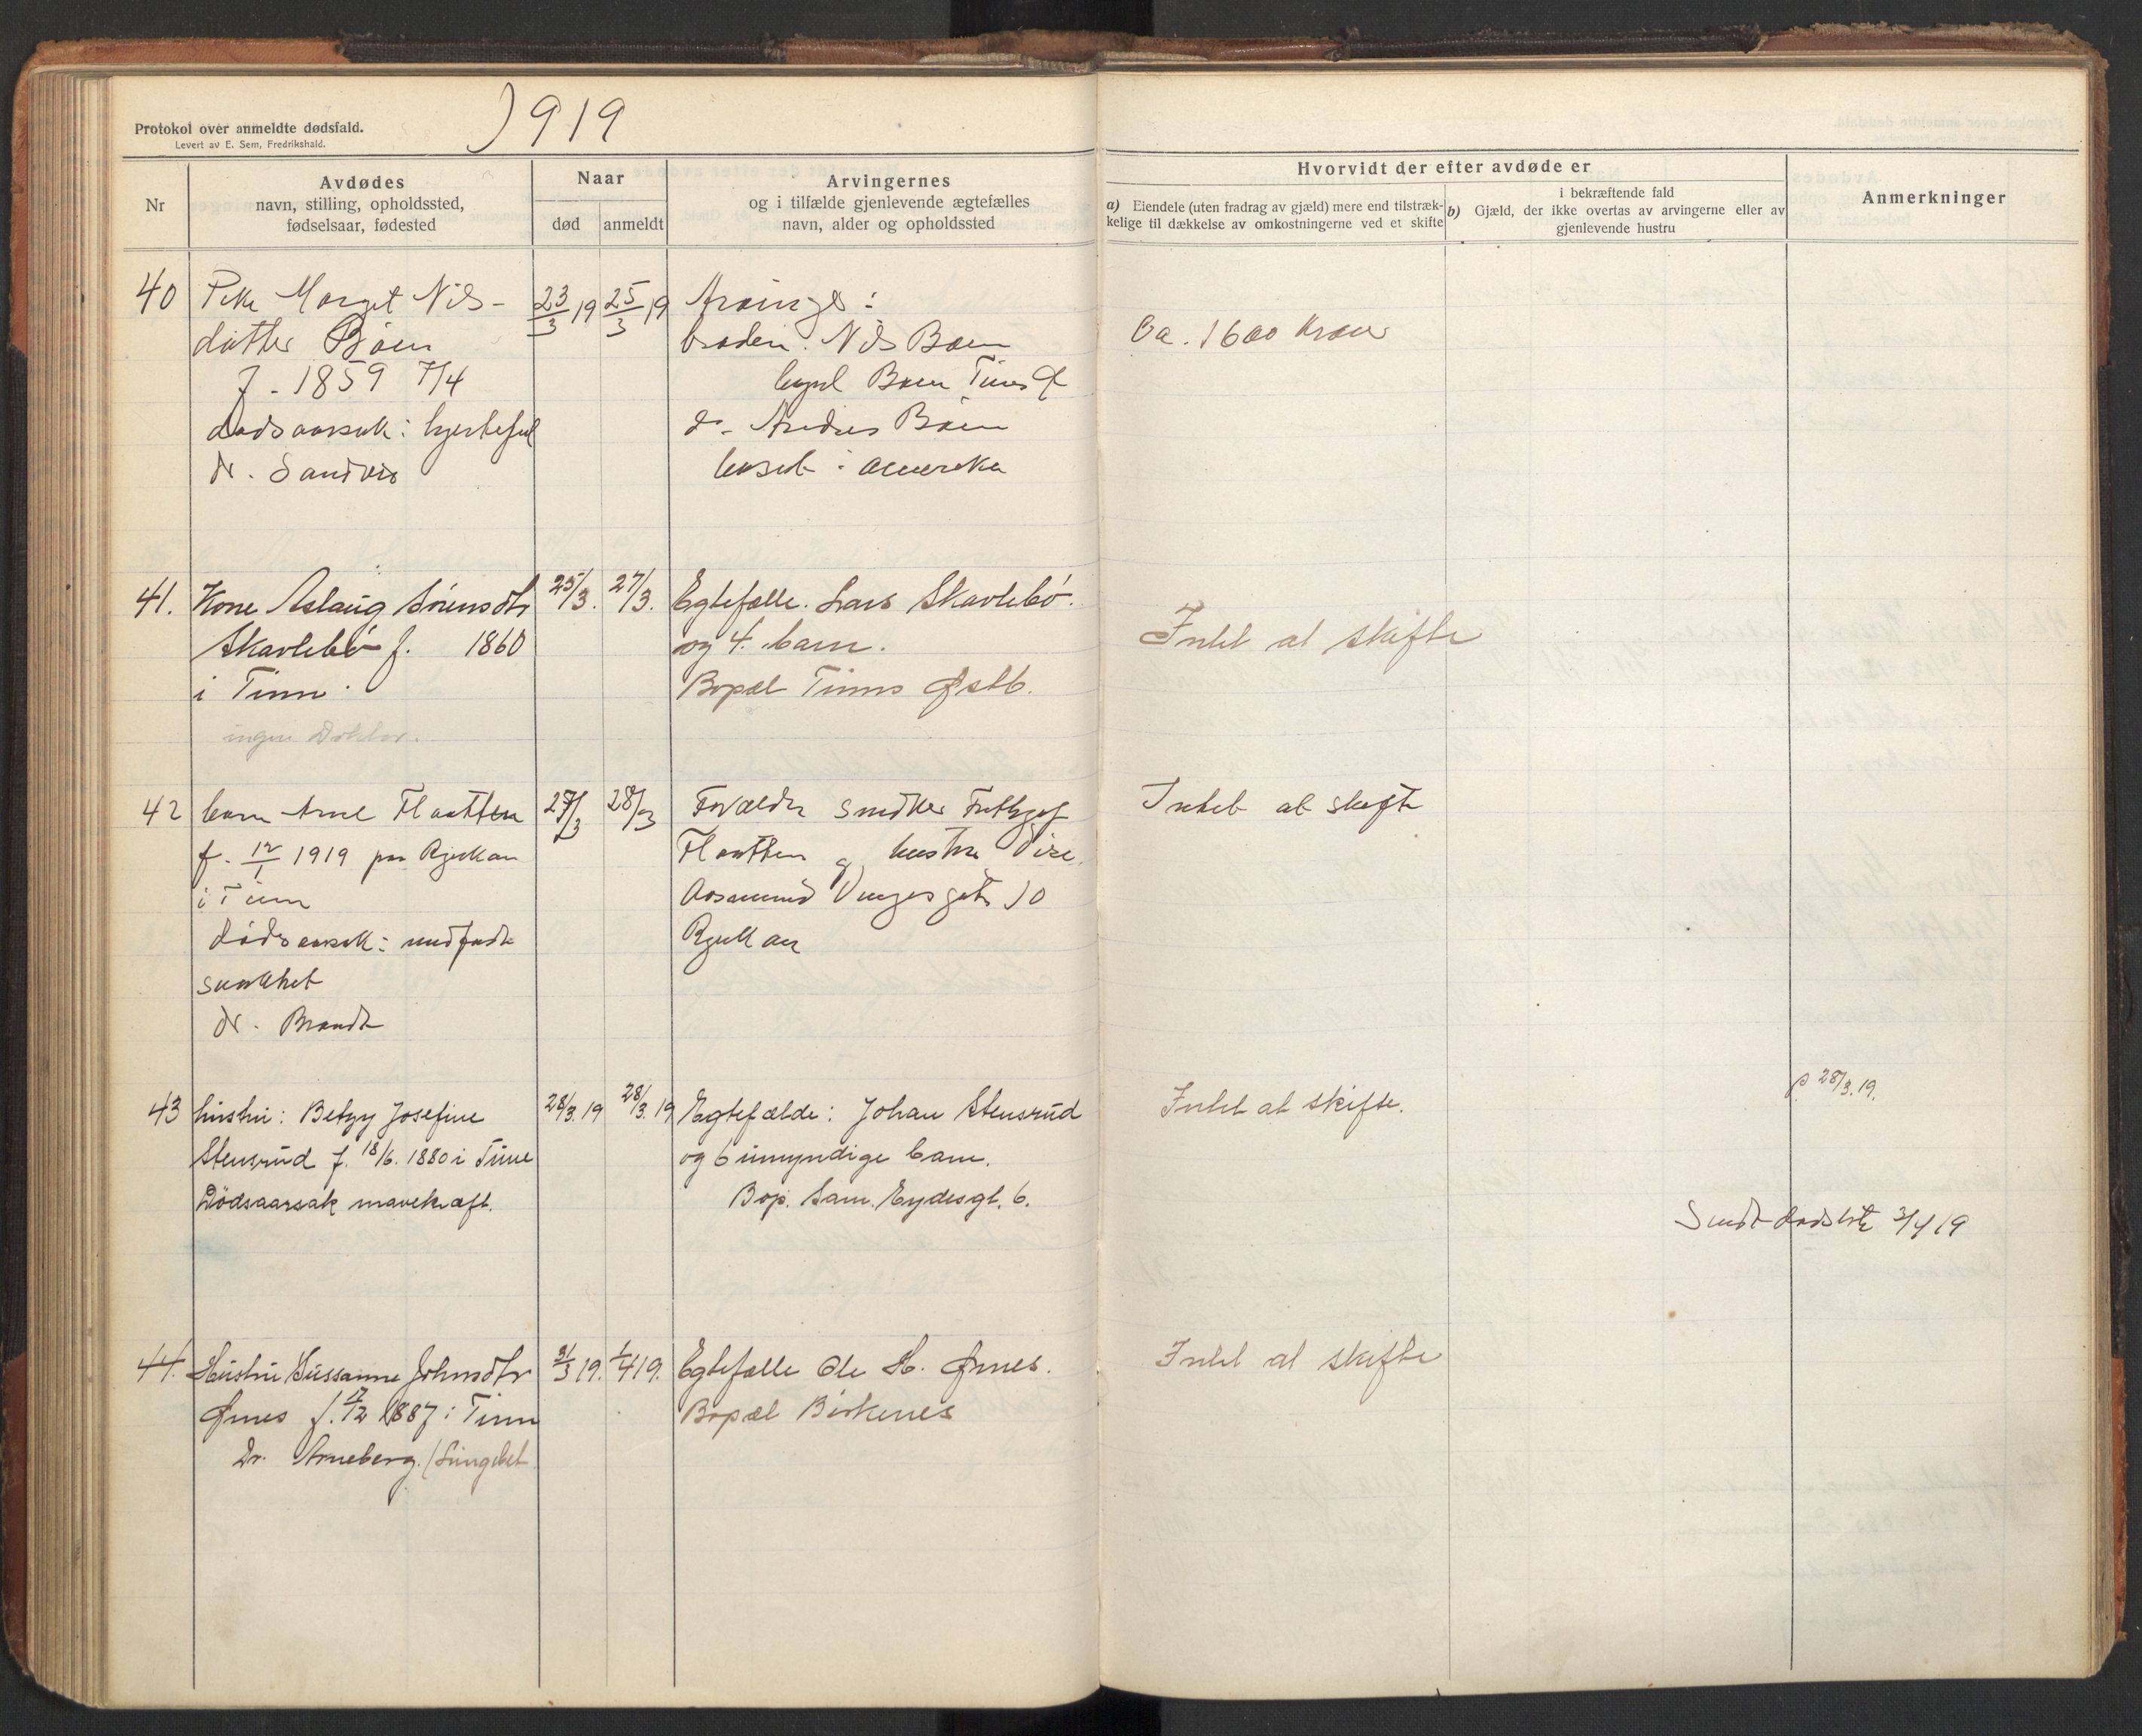 1919
Protokol over anmeldte dødsfald.
Levert av E. Sem, Fredrikshald.
Nr
Avdødes
navn, stilling, opholdssted,
fødselsaar, fødested
Naar
død
anmeldt
Arvingernes
og i tilfælde gjenlevende ægtefælles
navn, alder og opholdssted
Hvorvidt der efter avdøde er
a) Eiendele (uten fradrag av gjæld) mere end tilstræk-
kelige til dækkelse av omkostningerne ved et skifte
i bekræftende fald
b) Gjæld, der ikke overtas av arvingerne eller av
gjenlevende hustru
Anmerkninger
40 Pike Marget Nils- 23/3 19 25/3 19 Arvinger:
Ca. 1600 kroner
datter Bøen broder. Nils Bøen
f. 1859 7/4 Bøen Tinns Ø
dødsaarsak: hjertefeil do. Andres Bøen
dr. Sandvis bosat i Amerika
41. Kone Aslaug Sørensdtr 25/3. 27/3. Egtefælle. Lars Skavlebö.
Intet at skifte
Skavlebö f. 1860 og 4. barn.
i Tinn. Bopæl Tinns Østb.
ingen Doktor.
42 barn Arne Flaatten 27/3 28/3 Forældre snedker Frithjof
Intet at skifte
f. 12/1 1919 paa Rjukan Flaatten og hustru
i Tinn Aasmund Vinjes gate 10
dødsaarsak: medfødt Rjukan
svakhet
dr. Brandt
43 hustru: Betzy Josefine 28/3.19 28/3.19 Egtefælde: Johan Stensrud
Intet at skifte. 28/3.19.
Stensrud f. 18/6. 1880 i Tinn og 6 umyndige barn.
Dödsaarsak mavekræft. Bop. Sam. Eydesgt. 6.
Sendt dødsliste 3/4 19
44. Hustru Sussanne Johnsdtr 31/3 19. 1/4 19. Egtefælle Ole H. Ørnes.
Intet at skifte
Ørnes f. 17/12 1887 i Tinn Bopæl Birkenes
Dr. Arneberg. (Lungebet.